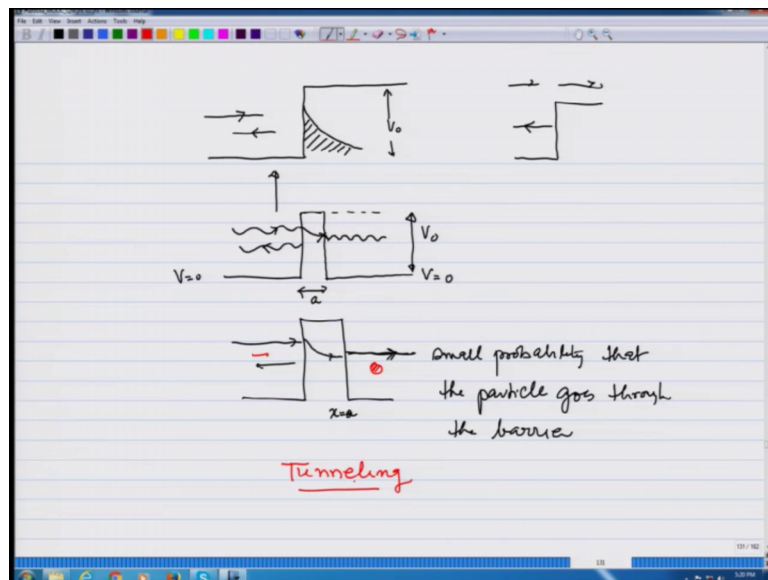 File Edit View Insert Actions Tools Help
V₀
V₀
V=0
V=0
a
small probability that
the particle goes through
the barrier
x=a
Tunneling
131 / 162
131
5:20 PM